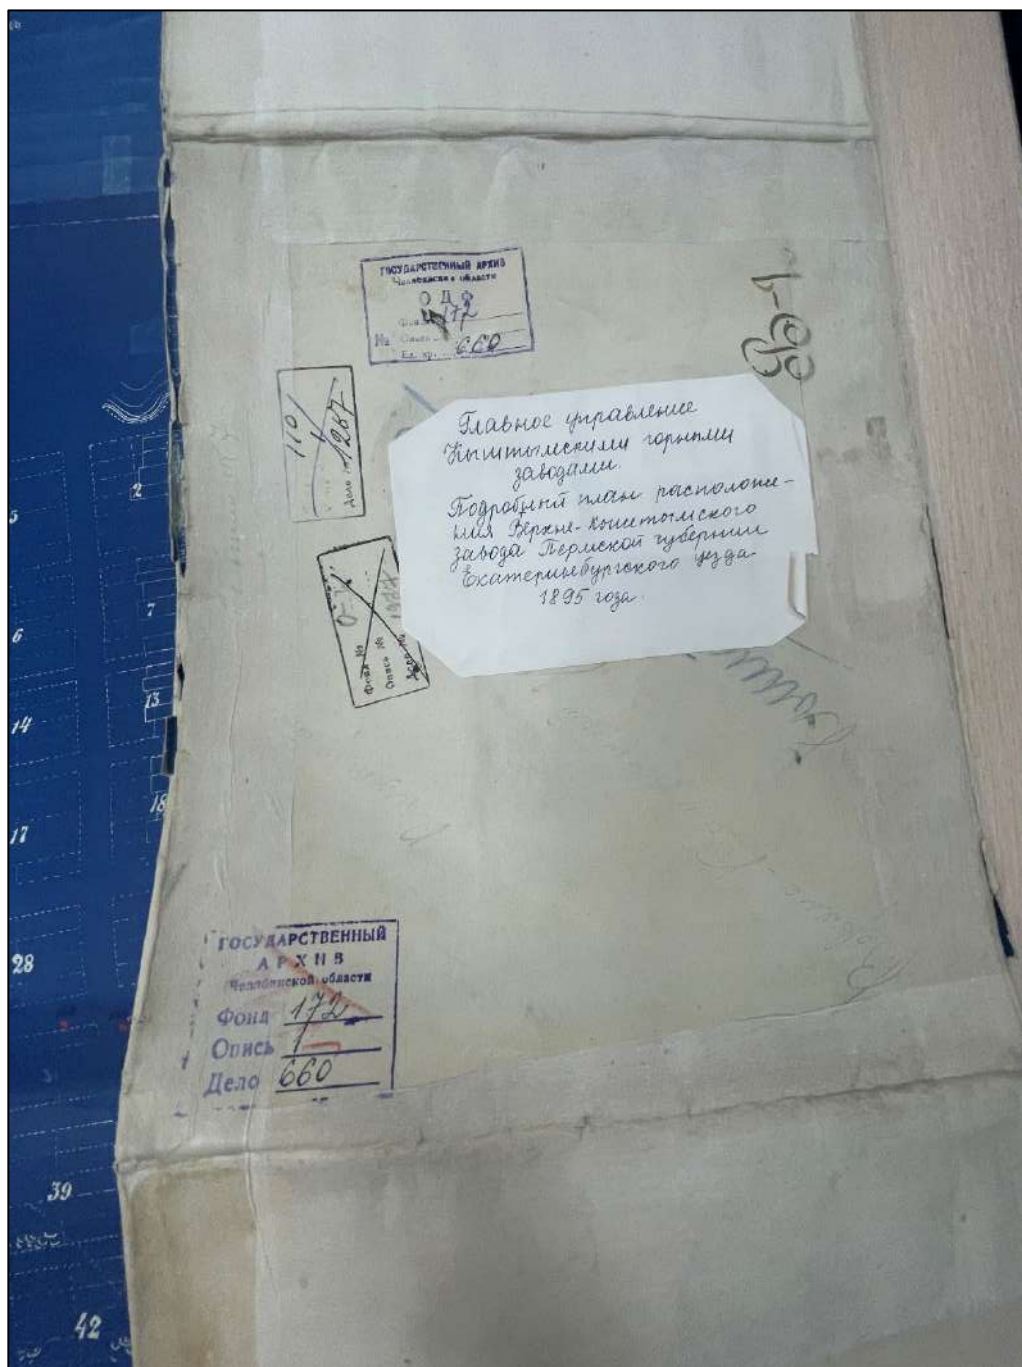 ГОСУДАРСТВЕННЫЙ АРХИВ
Челябинской области
О Д Ф
172
№
Ед. хр. 660
110
Дело № 1287
Главное управление
Кыштымскими горными
заводами.
Подробный план расположе-
ния Верхне-Кыштымского
завода Пермской губернии
Екатеринбургского уезда
1895 года.
Фонд №
Опись №
ГОСУДАРСТВЕННЫЙ
АРХИВ
Челябинской области
Фонд 172
Опись 1
Дело 660
2
5
7
6
13
14
18
17
28
39
42